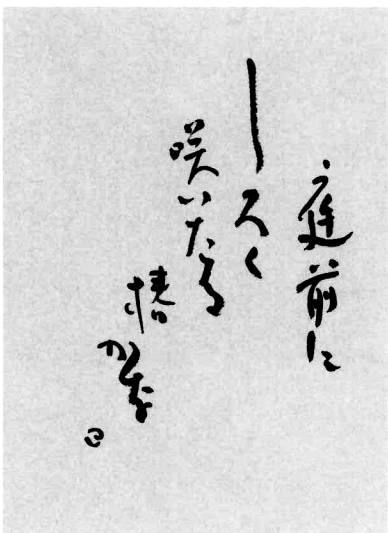 庭前に
しろく
咲いたる
椿
かな